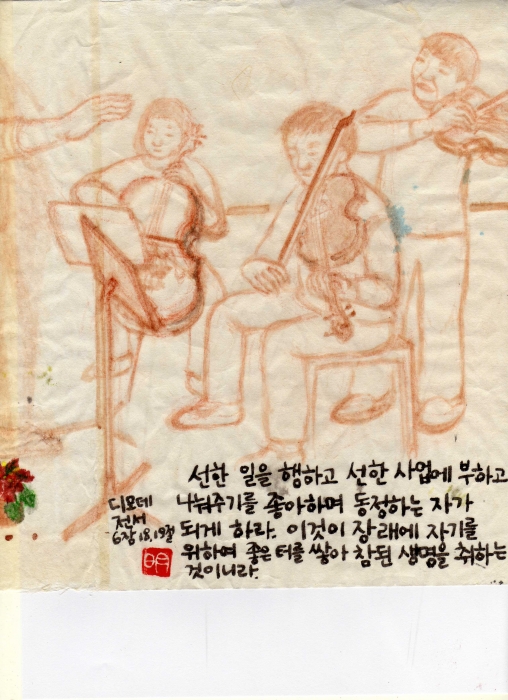 선한 일을 행하고 선한 사업에 부하고
나눠주기를 좋아하며 동정하는 자가
되게 하라. 이것이 장래에 자기를
위하여 좋은 터를 쌓아 참된 생명을 취하는
것이니라.
디모데
전서
6장 18,19절
明